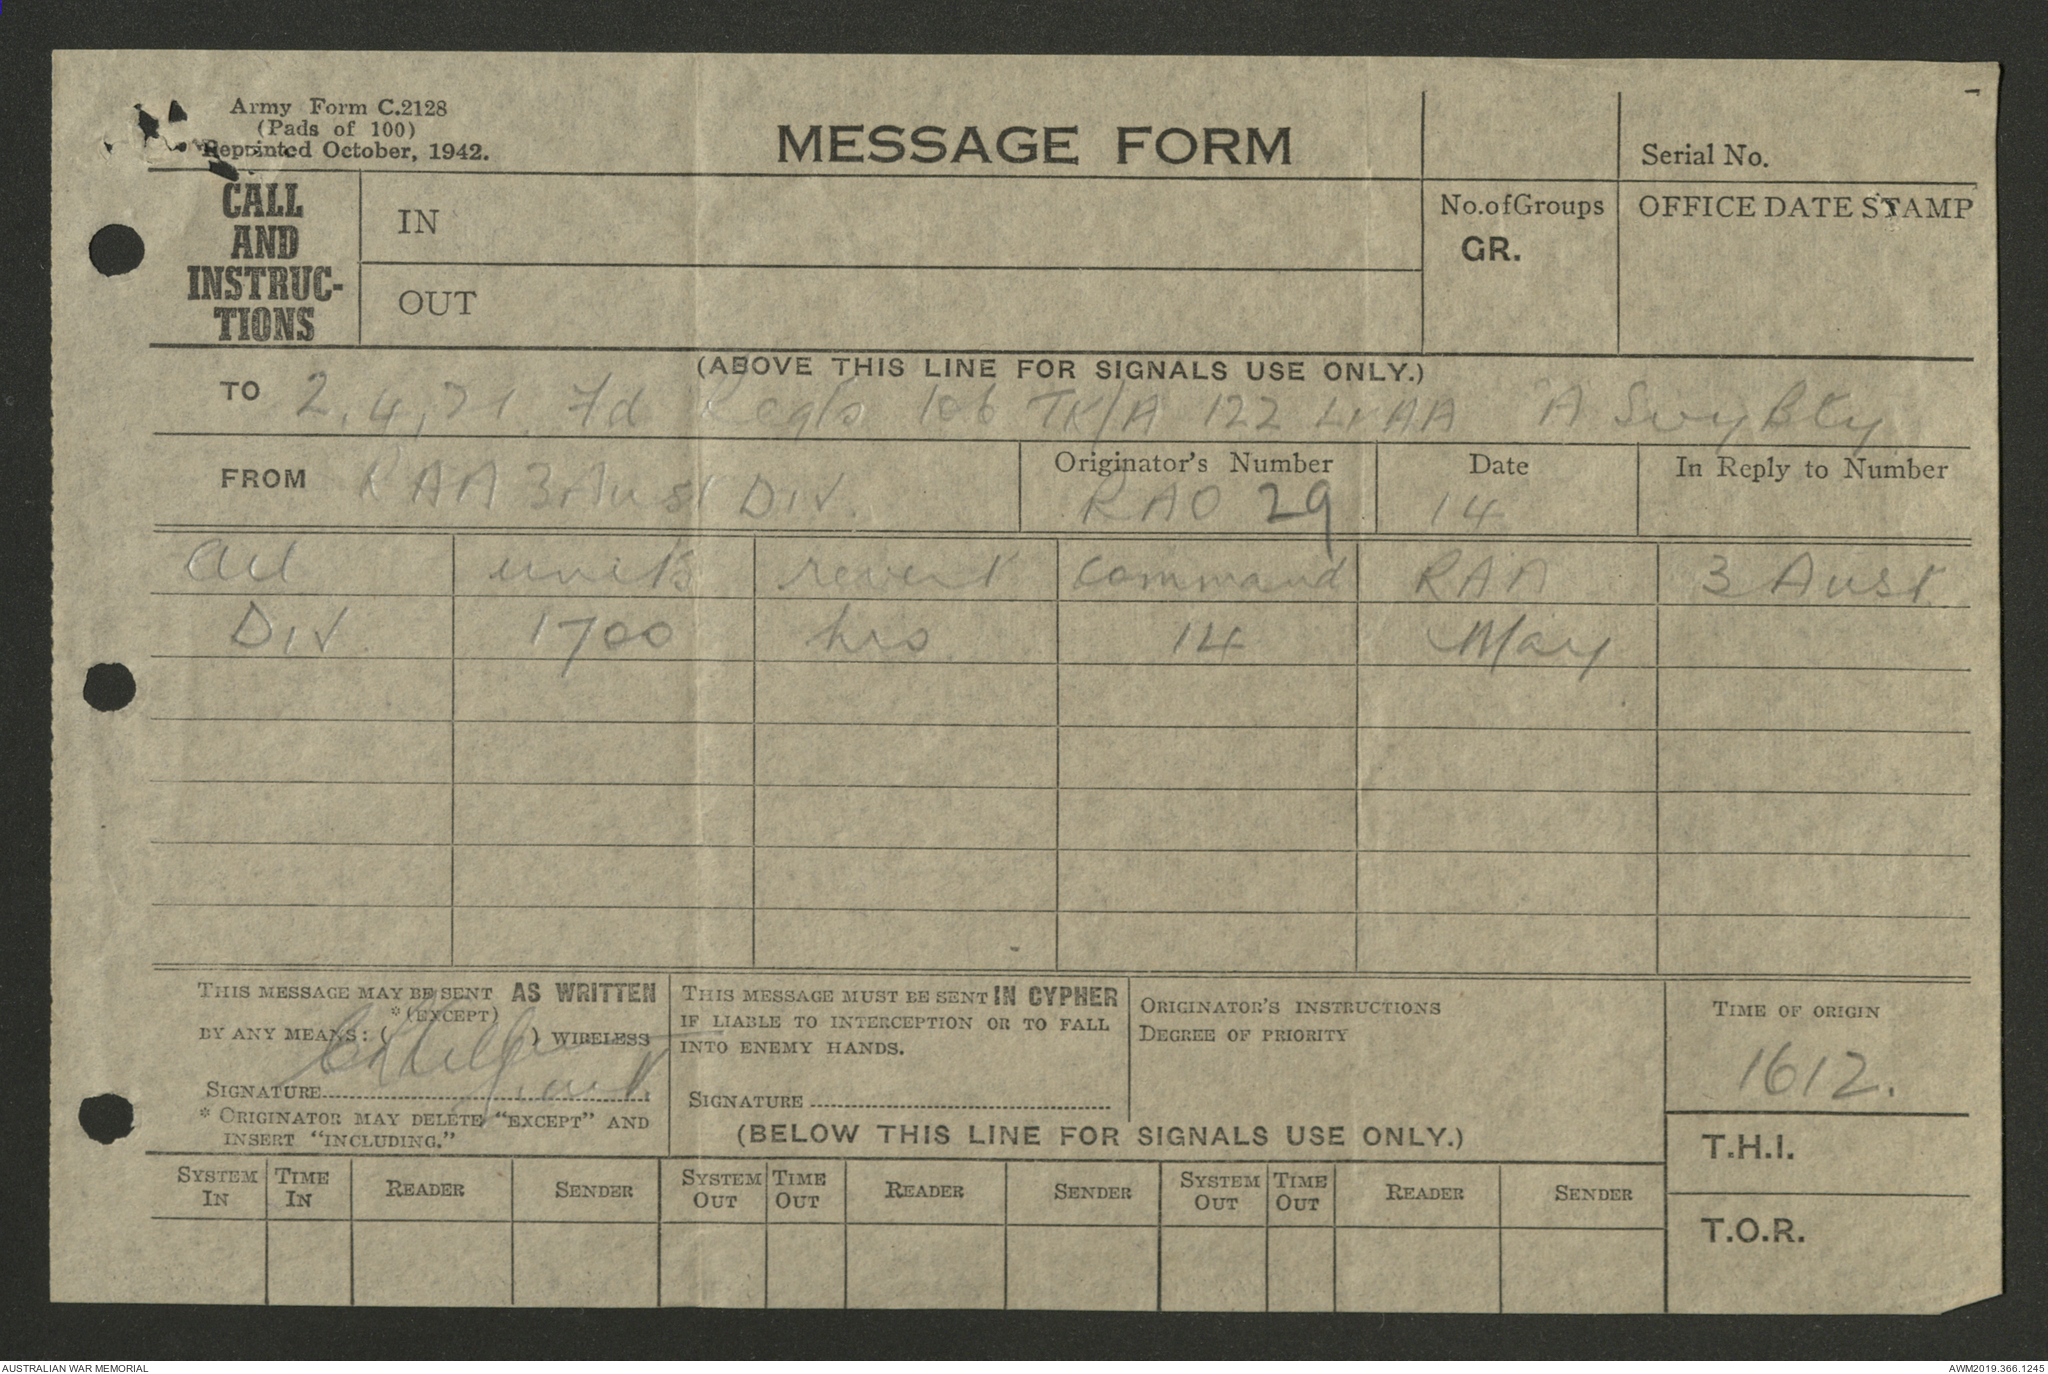 Army Form C.2128
(Pads of 100)
Reprinted October, 1942.
MESSAGE FORM
Serial No.
CALL
AND
INSTRUC-
TIONS
IN
OUT
No. of Groups
GR.
OFFICE DATE STAMP
(ABOVE THIS LINE FOR SIGNALS USE ONLY.)
TO 2, 4, 21 Fd Regts 106 TK/A 122 Lt AA "A Svy Bty
FROM RAA 3 Aust Div.
Originator's Number
RAO 29
Date
14
In Reply to Number
All units revert command RAA 3 Aust
Div 1700 hrs 14 May
THIS MESSAGE MAY BE SENT AS WRITTEN
*(EXCEPT)
BY ANY MEANS: ( ) WIRELESS
SIGNATURE
* ORIGINATOR MAY DELETE "EXCEPT" AND
INSERT "INCLUDING."
THIS MESSAGE MUST BE SENT IN CYPHER
IF LIABLE TO INTERCEPTION OR TO FALL
INTO ENEMY HANDS.
SIGNATURE
ORIGINATOR'S INSTRUCTIONS
DEGREE OF PRIORITY
TIME OF ORIGIN
1612.
(BELOW THIS LINE FOR SIGNALS USE ONLY.)
T.H.I.
T.O.R.
SYSTEM IN TIME IN READER SENDER SYSTEM OUT TIME OUT READER SENDER SYSTEM OUT TIME OUT READER SENDER
AUSTRALIAN WAR MEMORIAL
AWM2019.366.1245